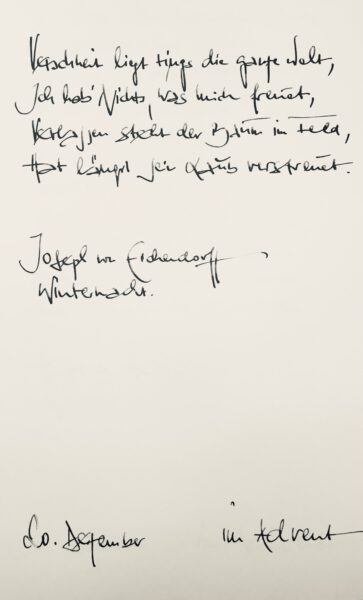 Verschneit liegt rings die ganze Welt,
Ich hab' Nichts, was mich freuet,
Verlassen steht der Baum im Feld,
Hat längst sein Laub verstreuet.
Joseph von Eichendorff
Winternacht.
20. Dezember im Advent